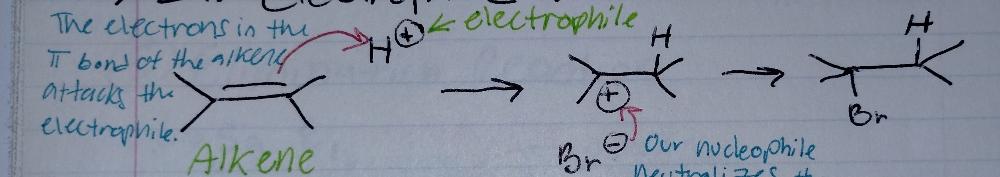 The electrons in the
π bond of the alkene
attacks the
electrophile.
H + ← electrophile
Alkene
H
+
Br -
Our nucleophile
neutralizes
H
Br